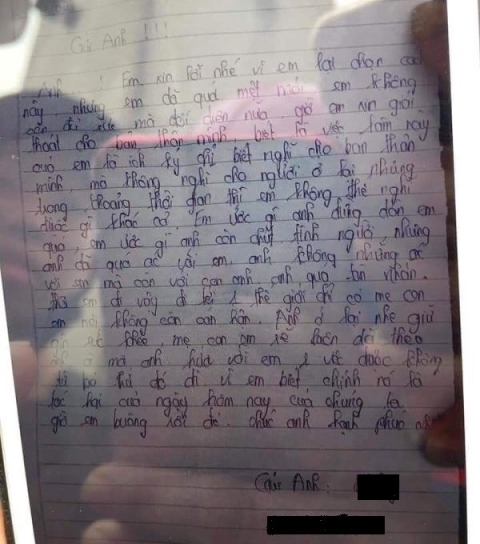 Gửi Anh !!!
Anh ..! Em xin lỗi nhé vì em lại chọn cách
này nhưng em đã quá mệt mỏi em không
còn đủ sức mà đối diện nữa, giờ em xin giải
thoát cho bản thân mình biết là việc làm này
của em là ích kỷ chỉ biết nghĩ cho bản thân
mình, mà không nghĩ cho người ở lại nhưng
trong khoảng thời gian thì em không thể nghĩ
được gì khác cả. Em ước gì anh đừng dồn em
quá, em ước gì anh còn chút tình người nhưng
anh đã quá ác với em, anh không những ác
với em mà còn với con anh, anh quá tàn nhẫn.
thôi em đi vậy đi tới 1 thế giới chỉ có mẹ con
em nơi không còn oán hận. Anh ở lại nhé giữ
sức khỏe, mẹ con em sẽ luôn dõi theo
mà anh hứa với em 1 việc được không
từ bỏ thứ đó đi vì em biết chính nó là
tác hại của ngày hôm nay của chúng ta
giờ em buông rồi đó. chúc anh hạnh phúc nhé
Gửi Anh: